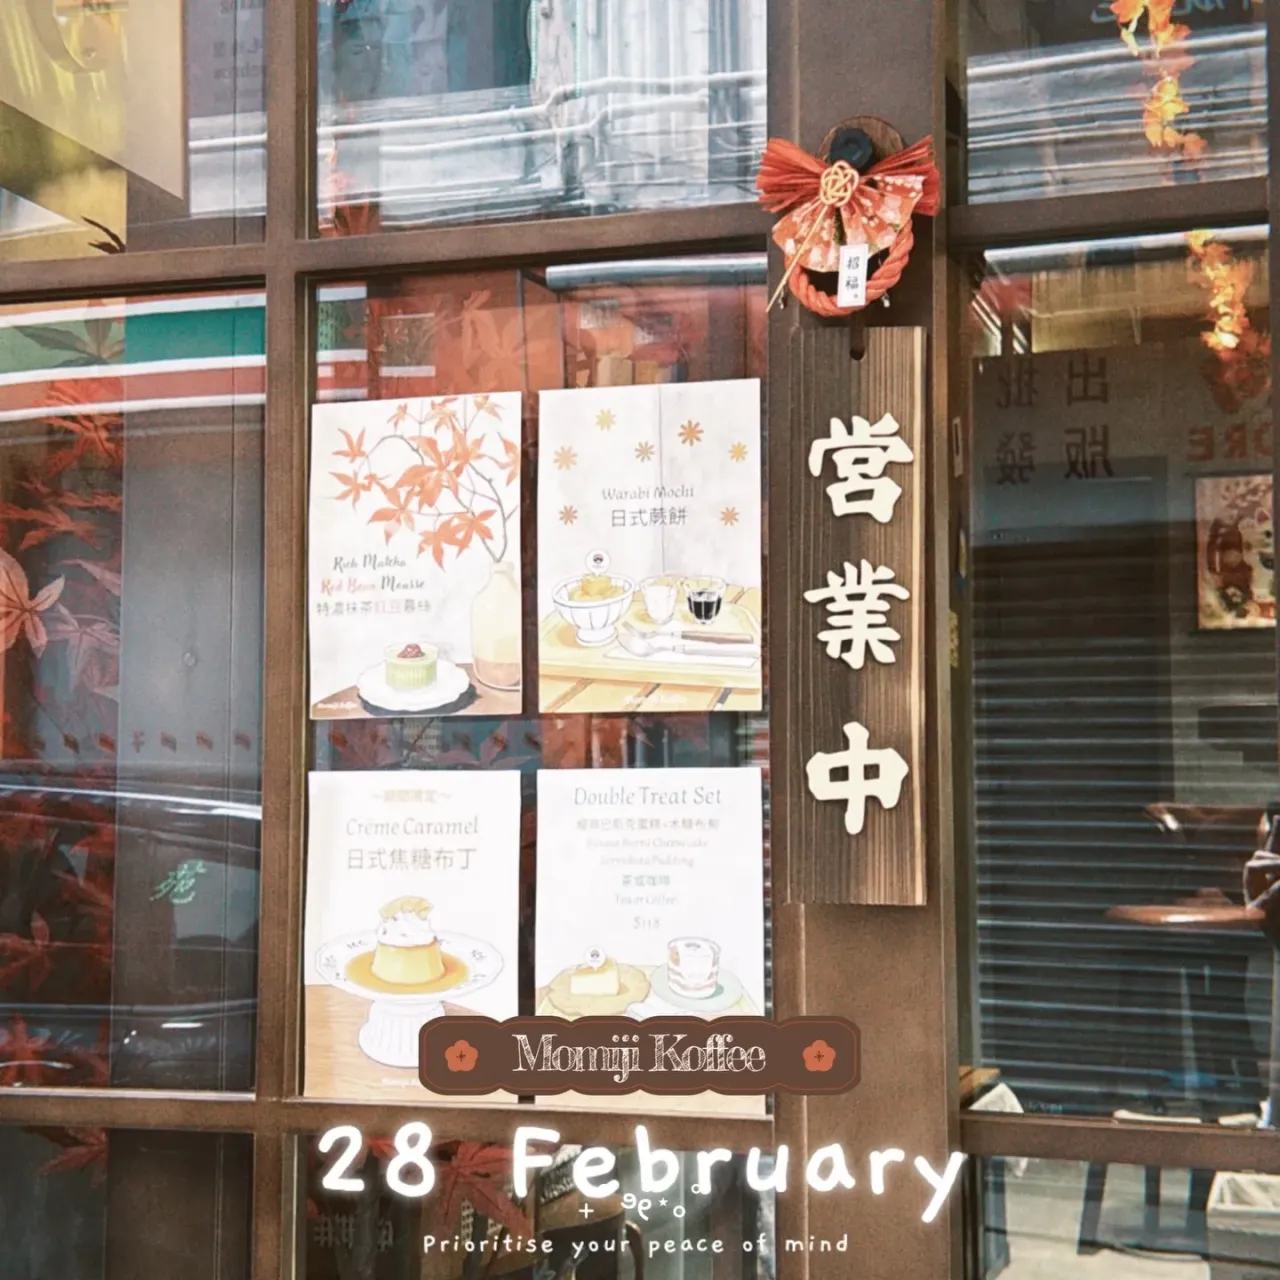 招福。
営業中
出版
批發
Rich Matcha
Red Bean Mousse
特濃抹茶紅豆慕絲
Momiji Koffee
Warabi Mochi
日式蕨餅
～期間限定～
Crème Caramel
日式焦糖布丁
Double Treat Set
Basque Burnt Cheesecake
茶或咖啡
Tea or Coffee
$118
Momiji Koffee
28 February
Prioritise your peace of mind